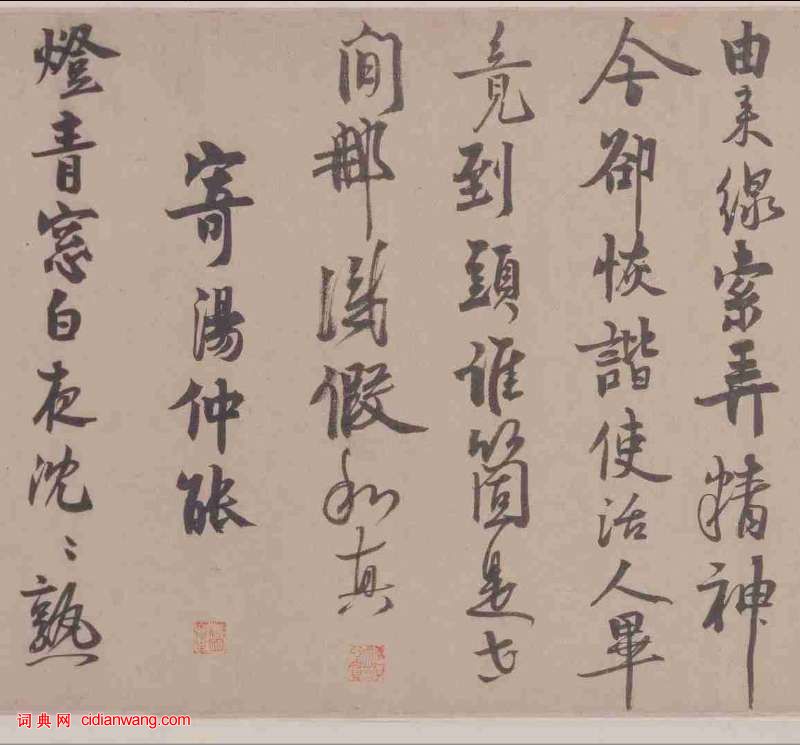 由来線索弄精神
今卻恢諧使活人畢
竟到頭誰箇是世
間那識假和真
寄湯仲能
燈青窓白夜沈〻熟
词典网 cidianwang.com